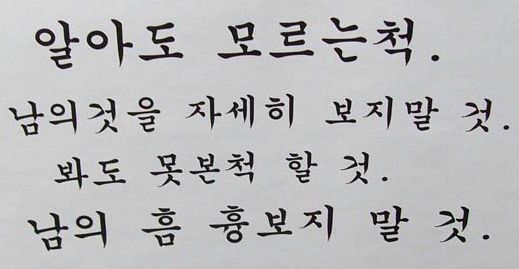 알아도 모르는척.
남의것을 자세히 보지말 것.
봐도 못본척 할 것.
남의 흠 흉보지 말 것.